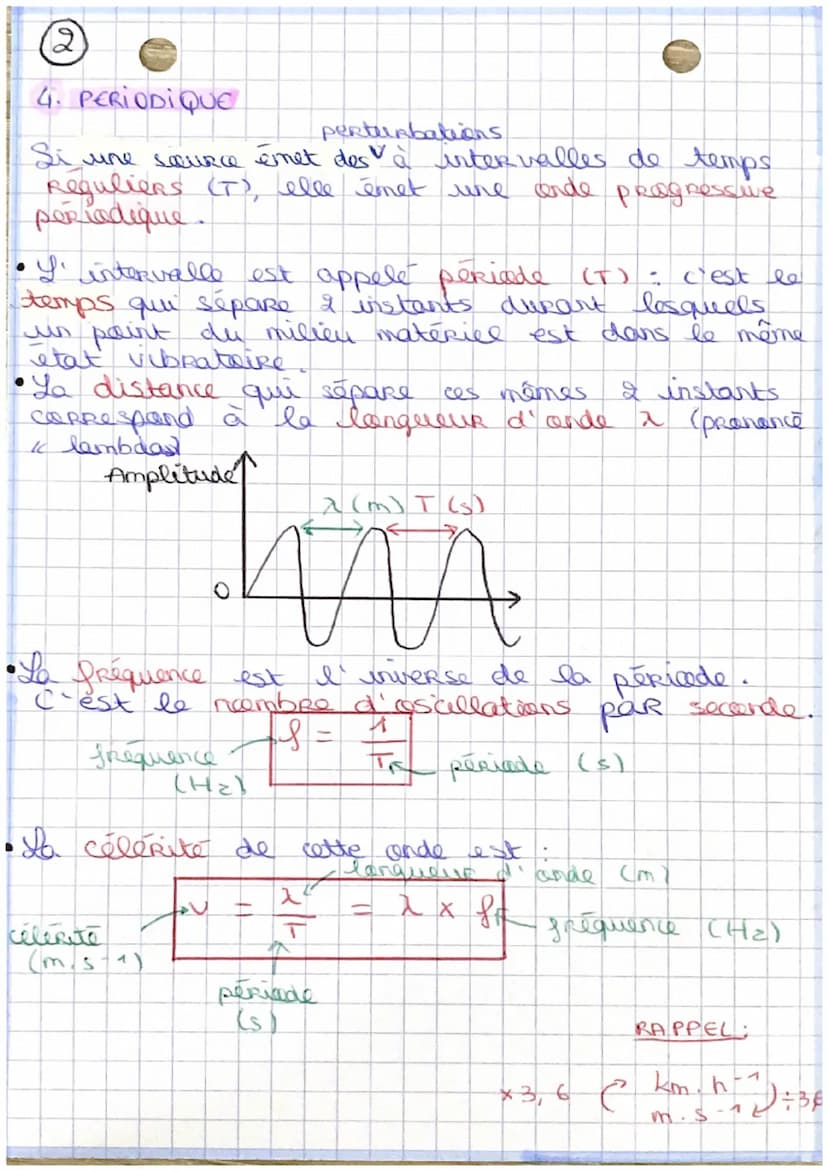 2
4. PERIODIQUE
perturbations
Si une source émet des V à intervalles de temps
Réguliers (T), elle émet une onde progressive
périodique.
• L'intervalle est appelé période (T) : c'est le
temps qui sépare 2 instants durant lesquels
un point du milieu matériel est dans le même
état vibratoire.
• La distance qui sépare ces mêmes 2 instants
correspond à la longueur d'onde λ (prononcé
"lambda")
Amplitude
λ (m) T (s)
0
• La fréquence est l'inverse de la période.
C'est le nombre d'oscillations par seconde.
f = 1/T
fréquence
(Hz)
période (s)
• La célérité de cette onde est :
longueur d'onde (m)
v = λ/T = λ × f
fréquence (Hz)
célérité
(m.s-1)
période
(s)
RAPPEL:
×3,6 km.h-1 ÷3,6
m.s-1